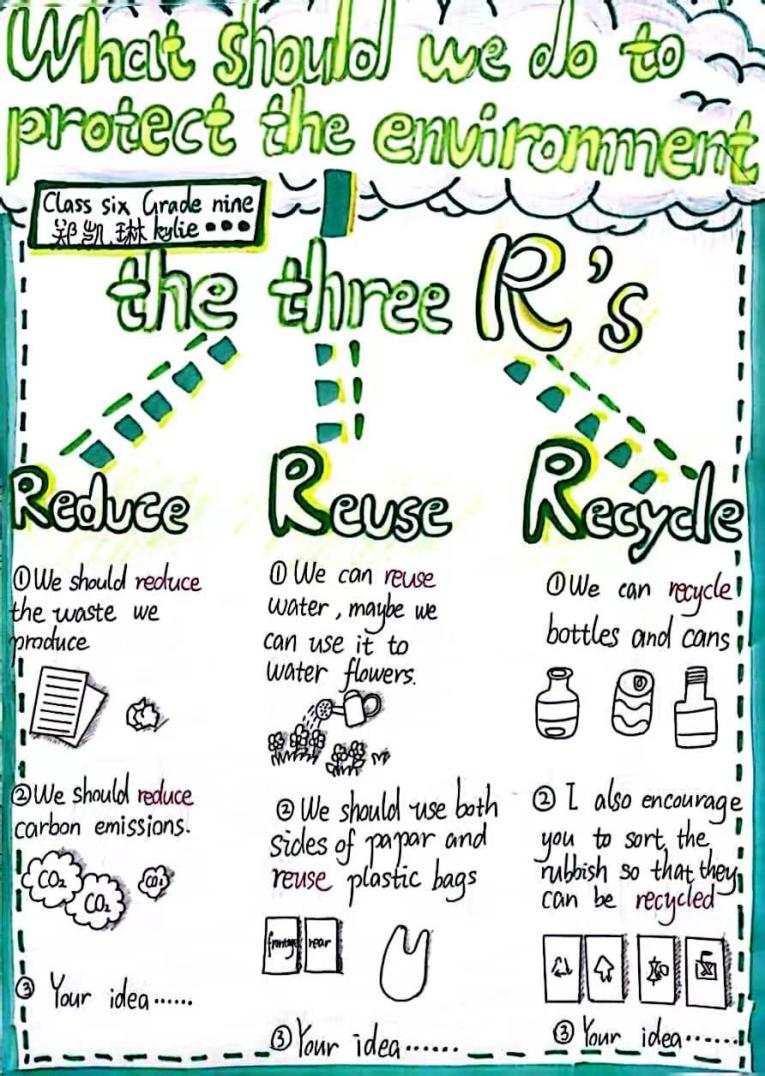 What should we do to
protect the environment
Class six Grade nine
郑凯琳 kylie
the three R's
Reduce
①We should reduce
the waste we
produce
②We should reduce
carbon emissions.
CO₂
CO₂
CO₂
③ Your idea......
Reuse
① We can reuse
water, maybe we
can use it to
water flowers.
② We should use both
sides of papar and
reuse plastic bags
rear
③ Your idea......
Recycle
①We can recycle
bottles and cans
② I also encourage
you to sort the
rubbish so that they
can be recycled
③ Your idea......